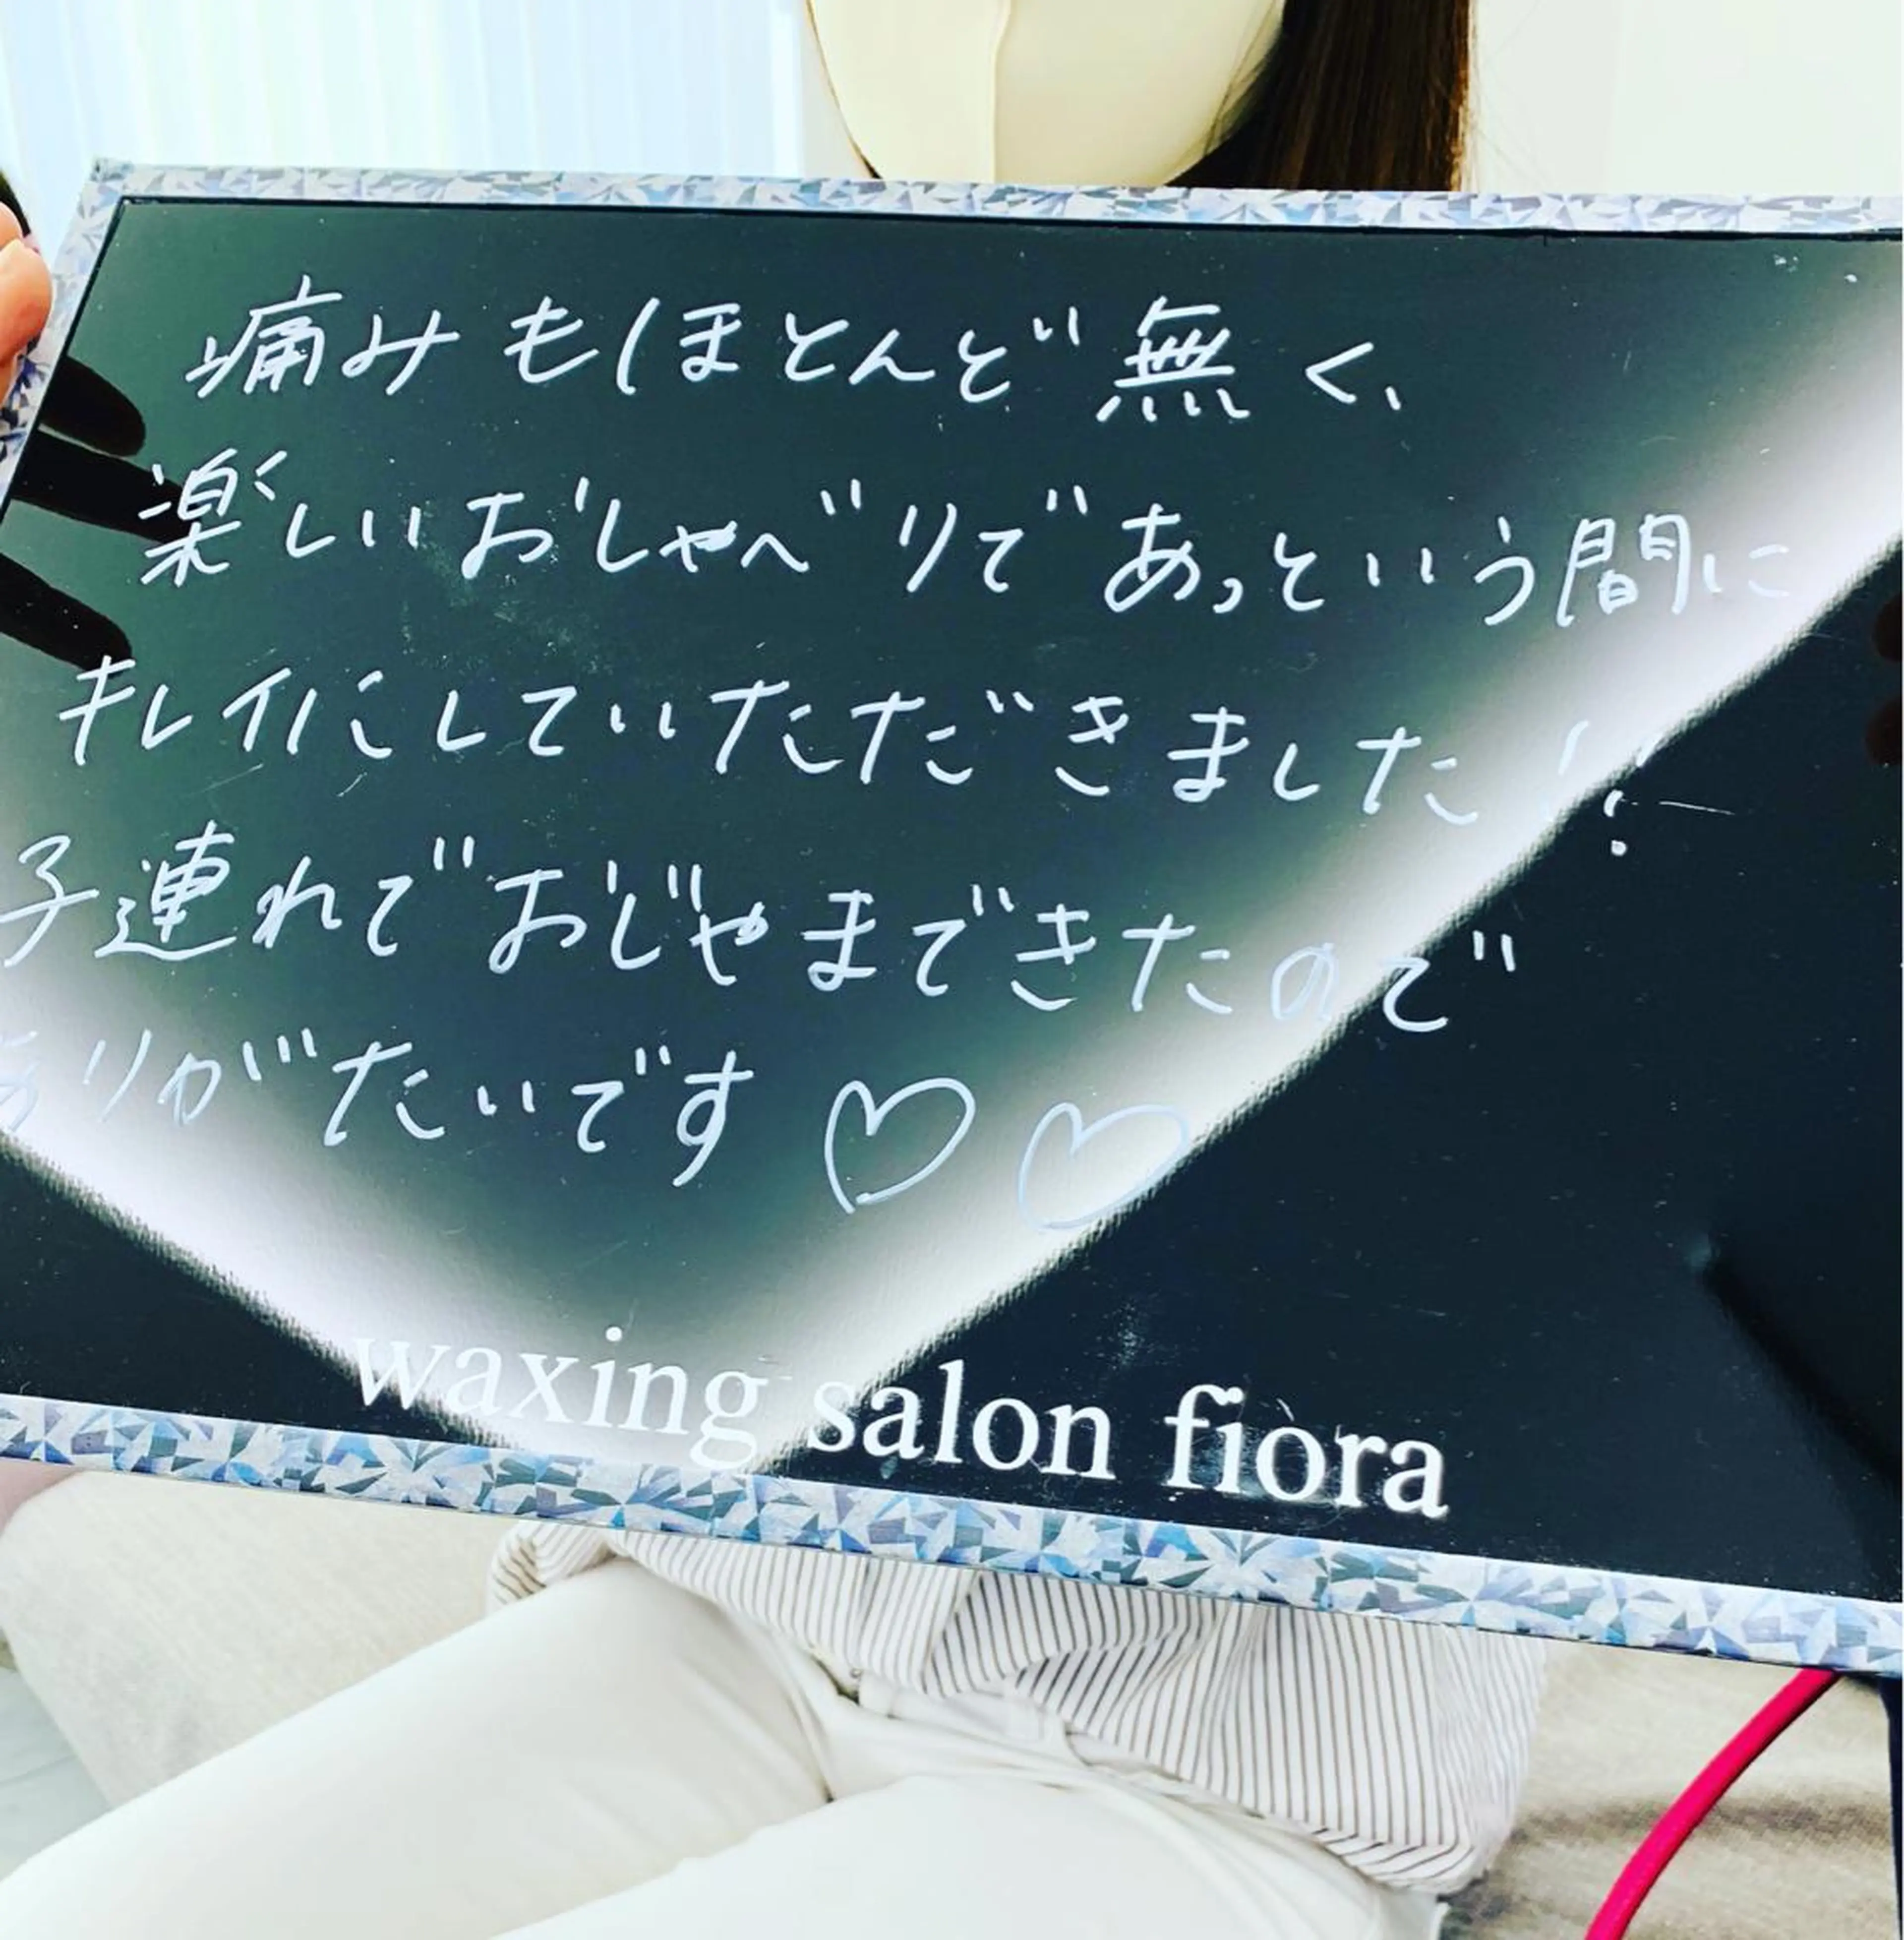 痛みもほとんど無く、
楽しいおしゃべりであっという間に
キレイにしていただきました!!
子連れでおじゃまできたので
ありがたいです♡♡
waxing salon fiora